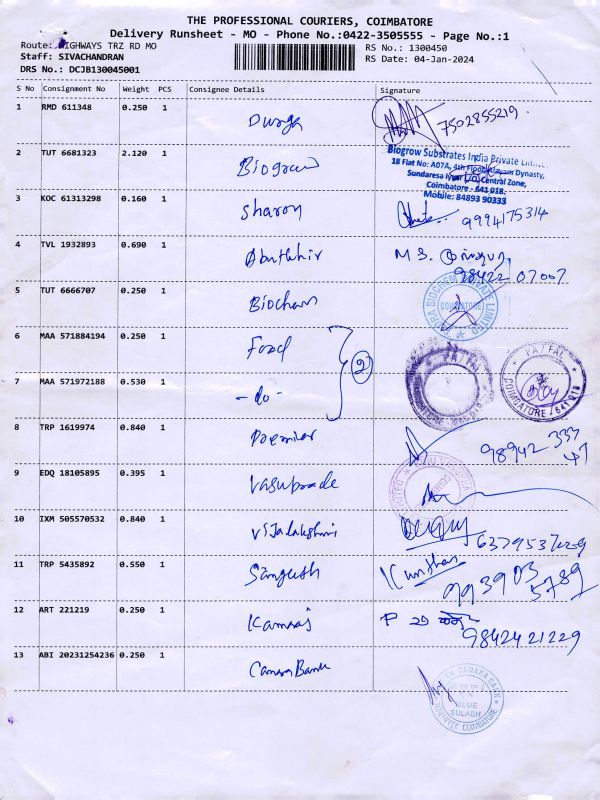 THE PROFESSIONAL COURIERS, COIMBATORE
Delivery Runsheet - MO - Phone No.:0422-3505555 - Page No.:1
Route: HIGHWAYS TRZ RD MO
RS No.: 1300450
Staff: SIVACHANDRAN
RS Date: 04-Jan-2024
DRS No.: DCJB130045001
S No Consignment No Weight PCS Consignee Details Signature
1 RMD 611348 0.250 1 Durga 7502855219
2 TUT 6681323 2.120 1 Biogrow
Biogrow Substrates India Private Limited
18 Flat No: A07A, 4th Floor, Dynasty,
Sundaresa Iyer Central Zone,
Coimbatore - 641 018.
Mobile: 84893 90333
3 KOC 61313298 0.160 1 Sharon 9994175314
4 TVL 1932893 0.690 1 M S. 98422 07007
5 TUT 6666707 0.250 1 Biochem
BIOCHEM PRIVATE LIMITED
COIMBATORE
6 MAA 571884194 0.250 1 Food
2
PA / FAI
PA / FAI
COIMBATORE / 641 018
7 MAA 571972188 0.530 1 -do-
8 TRP 1619974 0.840 1 Premier 98942 333
47
9 EDQ 18105895 0.395 1
10 IXM 505570532 0.840 1 Vijalakshmi
11 TRP 5435892 0.550 1 Sangeeth 99390 3
5789
12 ART 221219 0.250 1 Kamraj 9842421229
13 ABI 20231254236 0.250 1 Canara Bank
CANARA BANK
MSME
SULABH
COIMBATORE